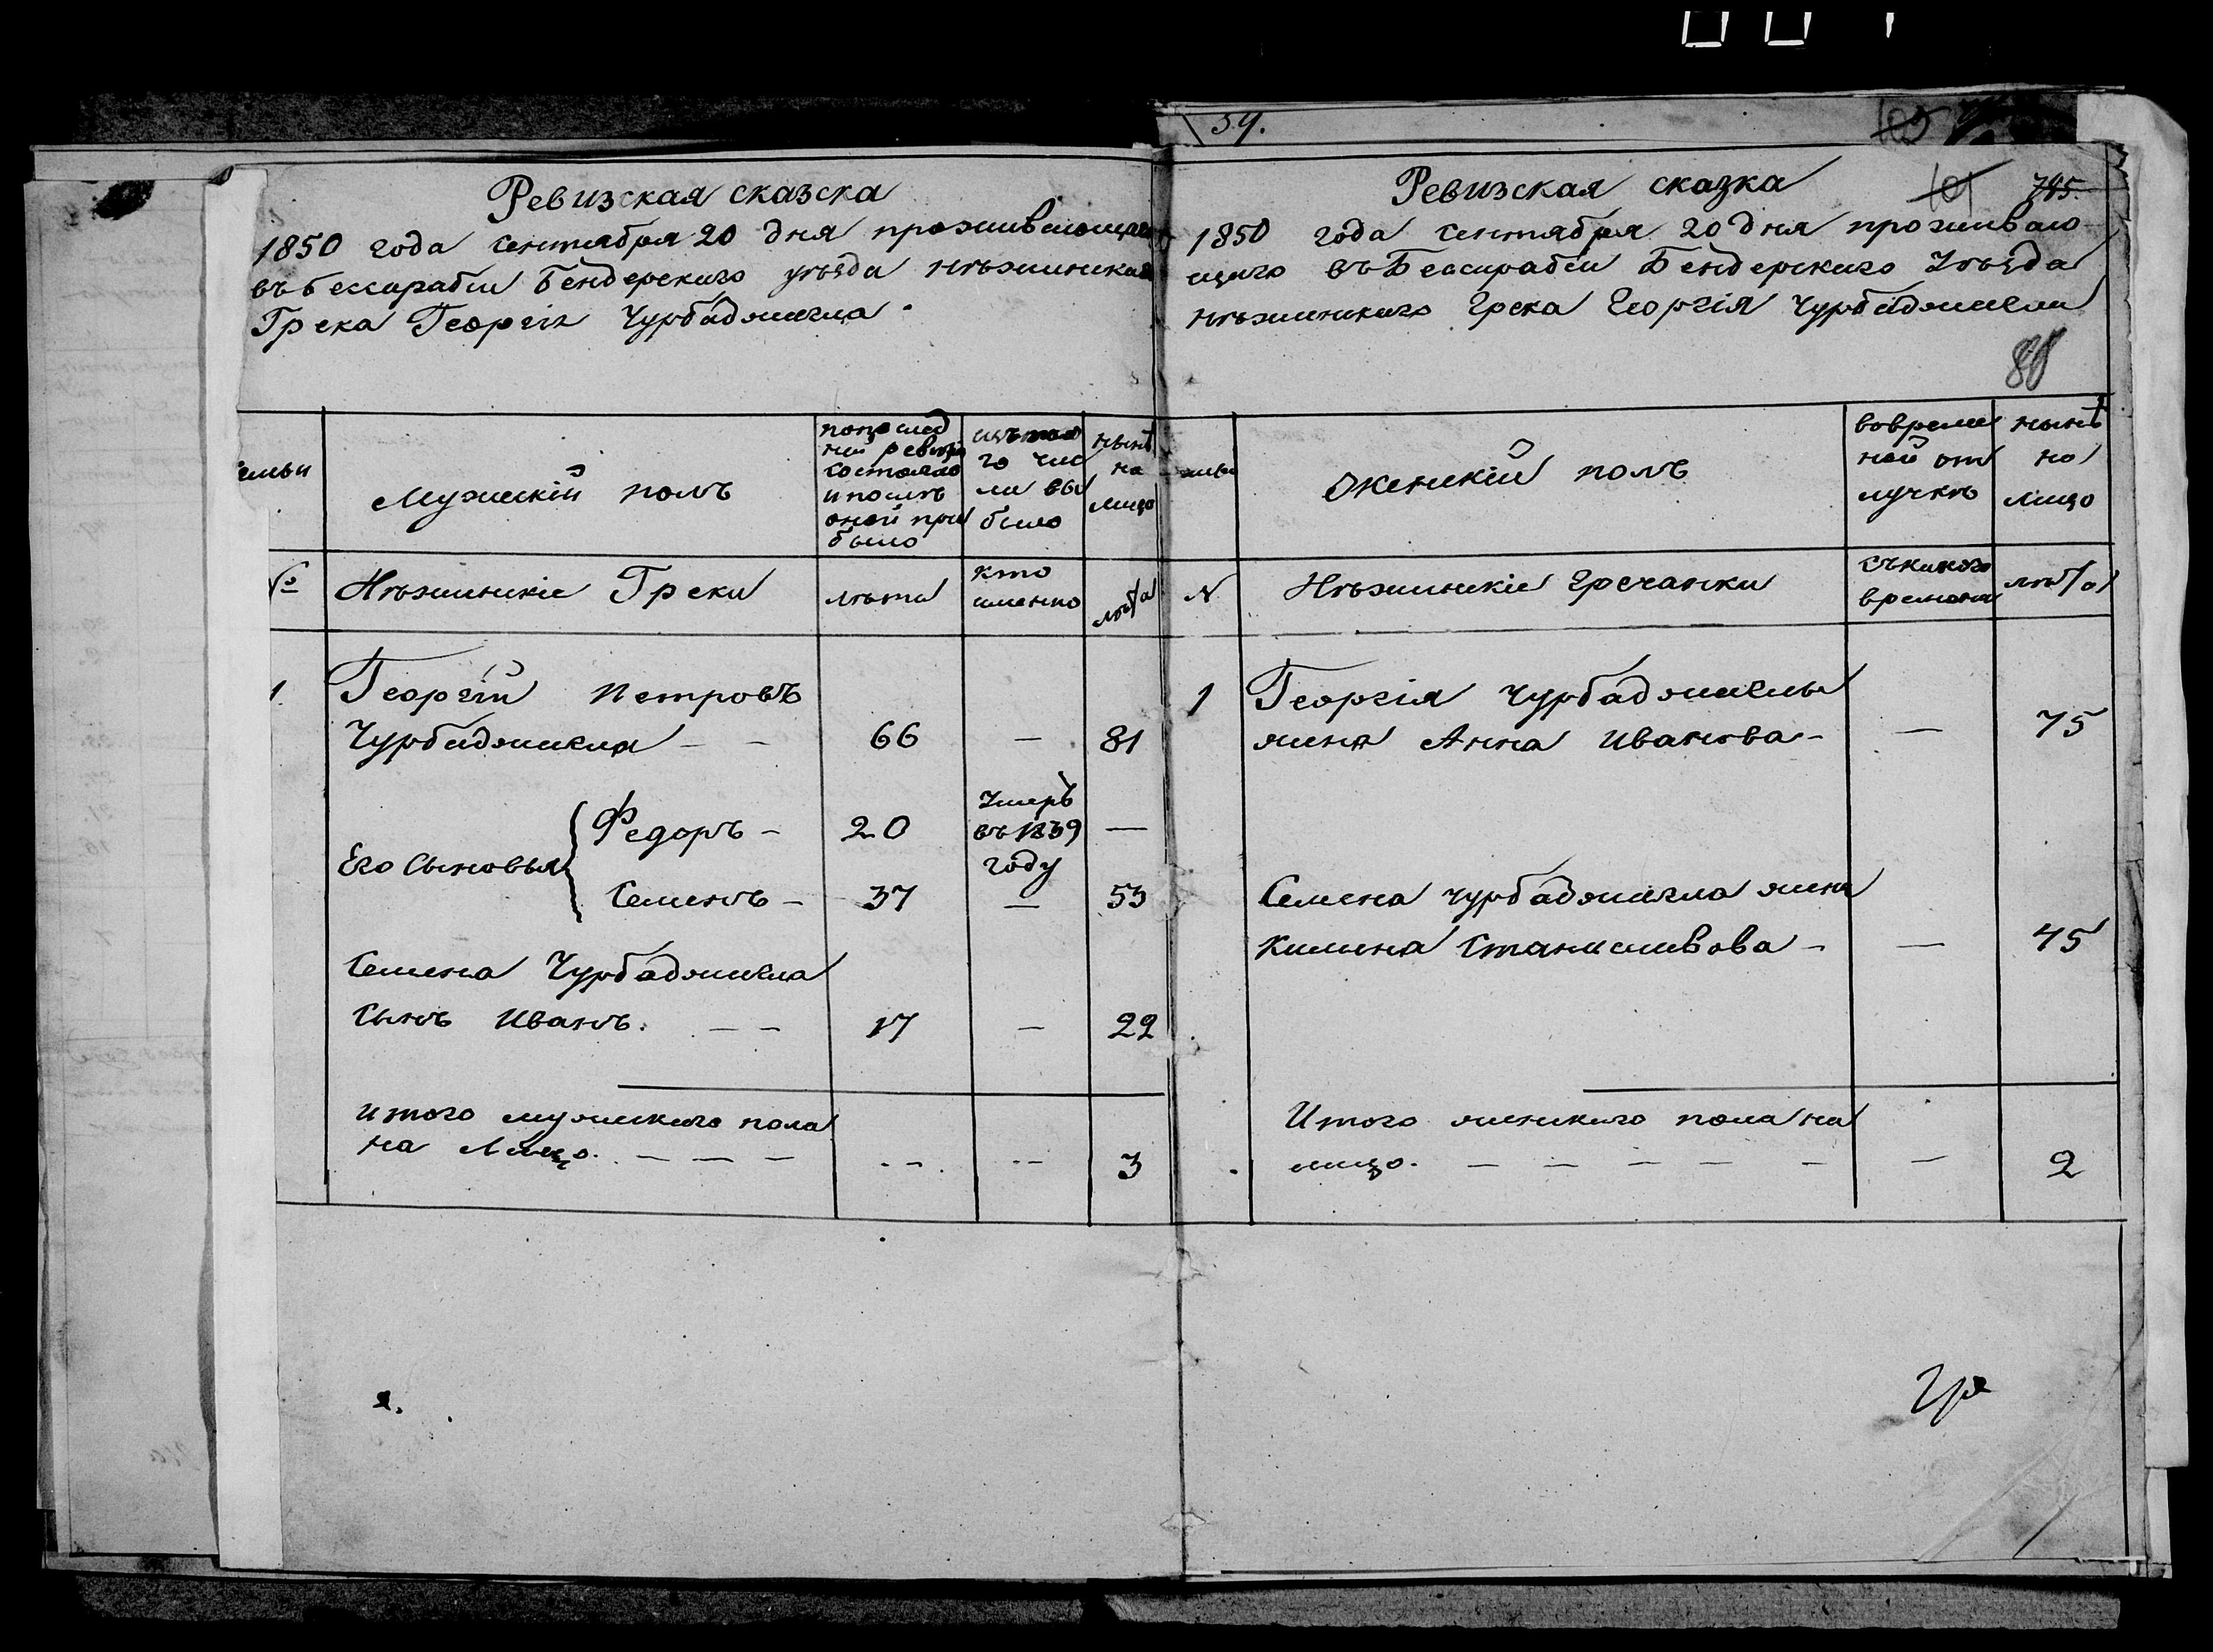 Ревизская сказска
1850 года сентября 20 дня проживающаго
въ бессарабіи Бендерскаго уѣзда нѣжинскаго
Грека Георгія Чурбаджигла
емьи
Мужескій полъ
попослед
ней ревизіи
состояло
и послѣ
оной при
было
изътаго
чис
ла вы
было
нынѣ
на
лицо
№
Нѣжинскіе Греки
лѣта
кто
именно
лѣта
1
Георгій Петровъ
Чурбаджигла – – 66 – 81
Его Сыновья
Федоръ – 20
Умеръ
въ 1839
году
—
Семенъ – 37 — 53
Семена Чурбаджигла
Сынъ Иванъ. – – 17 – 22
итого мужескаго пола
на Лицо. – – – 3
59.
105
Ревизская сказка
101
785.
1850 года сентября 20 дня проживаю
щаго въ Бессарабіи Бендерскаго Уѣзда
нѣжинскаго Грека Георгія Чурбаджигли
80
Женскій полъ
вовремен
ной от
лучкѣ
нынѣ
на
лицо
N
Нѣжинскіе Гречанки
съкакого
времени
лѣта
1
Георгія Чурбаджиглы
жена Анна Иванова – — 75
Семена Чурбаджигла жена
Станиславова – — 45
Итого женскаго пола на
лицо. – – – – – – 2